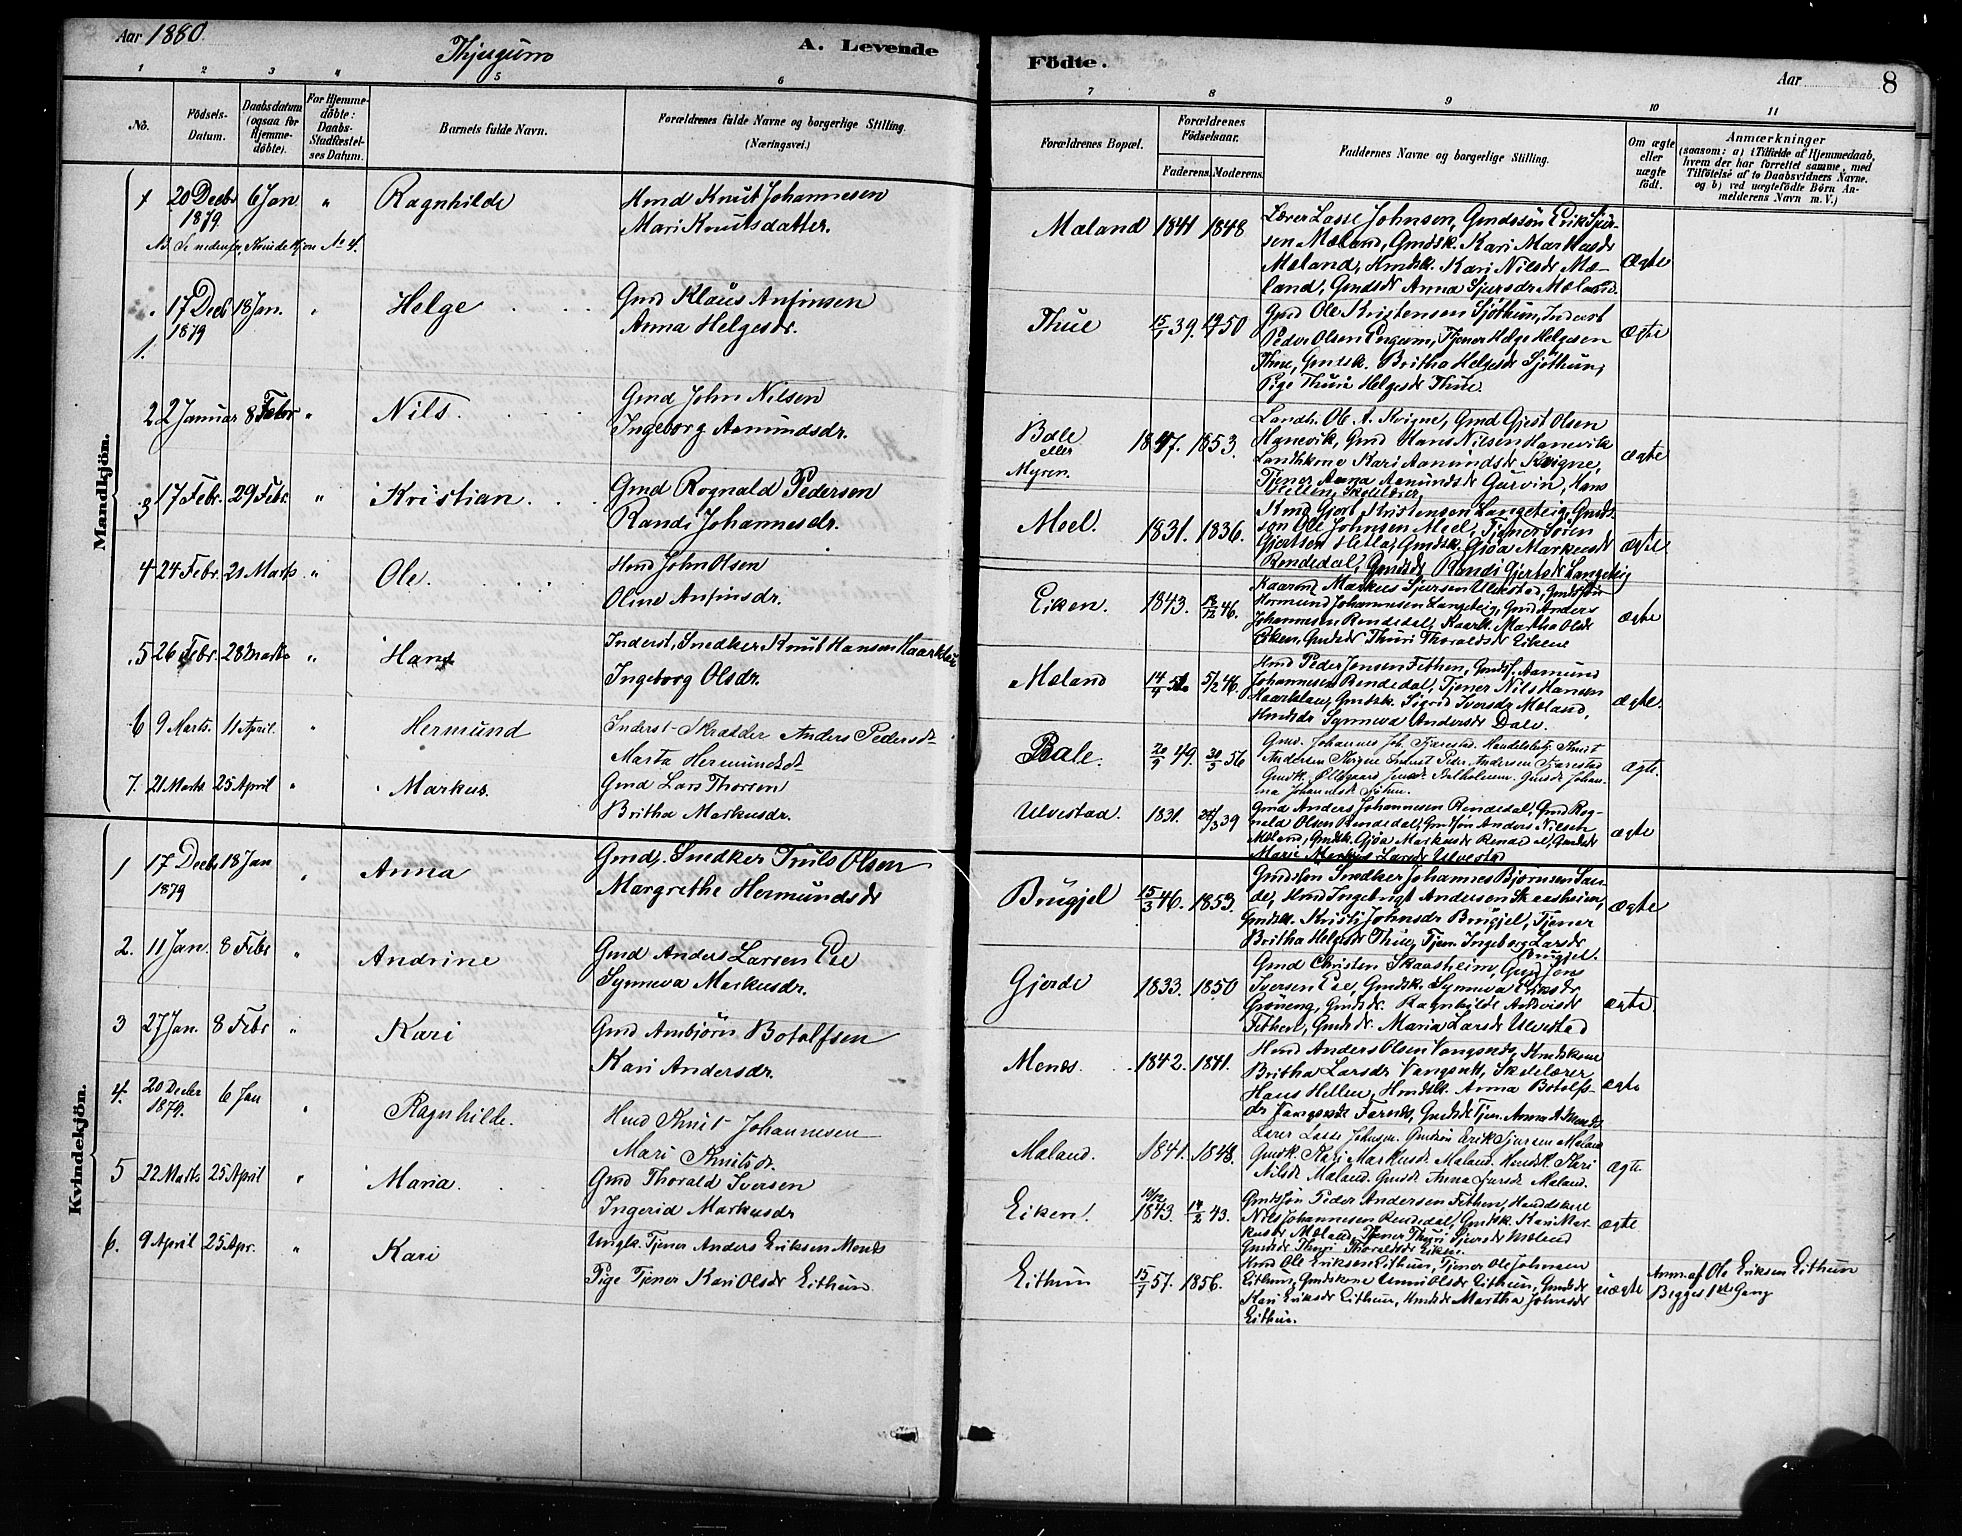 Aar 1880.
Thjugum
A. Levende
Födte.
Aar
8
1 2 3 " 5 6 7 8 9 10 11
No.
Födsels-Datum.
Daabsdatum (ogsaa for Hjemme-döbte).
For Hjemme-döbte: Daabs-Stadfæstel-ses Datum.
Barnets fulde Navn.
Forældrenes fulde Navne og borgerlige Stilling. (Næringsvei.)
Forældrenes Bopæl.
Forældrenes Födselsaar.
Faderens. Moderens.
Faddernes Navne og borgerlige Stilling.
Om ægte eller uægte födt.
Anmærkninger
(saasom: a) i Tilfælde af Hjemmedaab,
hvem der har forrettet samme, med
Tilföielse af to Daabsvidners Navne.
og b) ved uægtefödte Börn An-
melderens Navn m. V.)
Mandkjön.
1 20 Decbr 1879 6 Jan " Ragnhilde
Hmd Knut Johannesen
Mari Knutsdatter.
Mæland 1841 1848
Lærer Lasse Johnsen, Gmdssön Erik Sjur-
sen Mæland, Gmdsk. Kari Markusdr
Mæland, Hmdsk. Kari Nilsdr Mæ-
land, Gmdsdr Anna Sjursdr Mæland.
ægte
1. 17 Decb 1879 18 Jan. " Helge
Gmd Klaus Anfinsen
Anna Helgesdr.
Thue 15/1 39. 50
Gmd Ole Kristensen Sjöthun, Inderst
Peder Olsen Engum, Tjener Helge Helgesen
Thue, Gmdsk. Britha Helgesdr Sjöthun,
Pige Thuri Helgesdr Thue.
ægte
2 2 Januar 8 Febr " Nils.
Gmd John Nilsen
Ingeborg Asmundsdr.
Bale eller Myren. 1847. 1853.
Landh. Ole A. Kvigne, Gmd Gjest Olsen
Hanevik, Gmd Hans Nilsen Hanevik
Landhkone Kari Aamundsdr Kvigne,
Tjener Anna Aamundsdr Gurvin, Hans
Hellen, Skolelærer,
ægte
3 17 Febr. 29 Febr. " Kristian
Gmd Rognald Pedersen
Randi Johannesdr.
Meel. 1831. 1836.
Hmd Gjert Kristensen Langeteig, Gmds-
sön Ole Johnsen Meel, Tjener Sören
Gjertsen Hetle, Gmdsk. Gjöa Markusdr
Rendedal, Gmdsdr Randi Gjertsdr Langeteig
ægte
4 24 Febr. 21 Marts " Ole.
Hmd John Olsen
Oline Anfinsdr.
Eiken. 1843. 46.
Kaarmd Markus Sjursen Ulvestad, Gmdssön
Hermund Johannesen Langeteig, Gmd Anders
Johannesen Rendedal, Kaark. Martha Olsdr
Eiken, Gmdsdr Thuri Thoraldsdr Eikene
ægte
5 26 Febr. 28 Marts " Hans
Inderst, Snedker Knut Hansen Haarklau
Ingeborg Olsdr.
Mæland 14/9 5/2 46.
Hmd Peder Jensen Fethen, Gmdsf. Aamund
Johannesen Rendedal, Tjener Nils Hansen
Haarklau, Gmdsk. Sigrid Iversdr Mæland,
Hmdsdr Synneva Andersdr Dale.
ægte.
6 9 Marts. 11 April. " Hermund
Inderst Skrædder Anders Pedersen
Marta Hermundsdr
Bale. 20/9 49. 30/3 56
Gmd. Johannes Joh. Fjærestad. Handelsbetj. Knut
Andersen Kvigne Inderst Peder Andersen Fjærestad
Gmdk. Ollegaard Jensdr Balholmen. Gmdsdr Johan-
na Johannesdr Sjöthun.
ægte.
7. 21 Marts 25 April " Markus.
Gmd Lars Thorsen
Britha Markusdr.
Ulvestaa. 1831. 39
Gmd Anders Johannesen Rendedal, Gmd Rog-
nald Olsen Rendedal, Gmdssön Anders Nilsen
Mæland, Gmdsk. Gjöa Markusdr Rendedal, Gmdsdr
Marie Larsdr Ulvestad
ægte
Kvindekjön.
1 17 Decbr 1879 18 Jan " Anna
Gmd. Snedker Truls Olsen
Margrethe Hermundsdr
Brugjel 15/3 46. 1853.
Gmdssön Snedker Johannes Bjørnsen San-
de, Hmd Ingebrigt Andersen Skaasheim,
Gmdsk. Kristi Johnsdr Brugjel, Tjener
Britha Helgesdr Thue, Tjen. Ingeborg Larsdr
Brugjel.
ægte
2. 11 Jan. 8 Febr " Andrine
Gmd Anders Larsen Ese
Synneva Markusdr.
Gjerde 1833. 1850
Gmd Christen Skaasheim, Gmd Jens
Iversen Ese, Gmdsk. Synneva Eriksdr
Gröneng, Gmdsdr. Ragnhilde Andvisdr
Fethen, Gmdsdr. Maria Larsdr Ulvestad
ægte
3 27 Jan. 8 Febr " Kari
Gmd Ambjörn Botolfsen
Kari Andersdr.
Menes. 1842. 1841.
Hmd Anders Olsen Vangsnes, Hmdskone
Britha Larsdr Vangsnes, Skolelærer
Hans Hellen, Hmdsk. Anna Botolfs-
dr Vangsnes
ægte
4. 20 Decbr 1879. 6 Jan " Ragnhilde.
Hmd Knut Johannesen
Mari Knutsdr.
Mæland. 1841. 1848.
Lærer Lasse Johnsen. Gmdssön Erik Sjursen Mæland
Gmdsk. Kari Markusdr Mæland. Hmdsk. Kari
Nilsdr Mæland. Gmdsdr Anna Sjursdr Mæland.
ægte
5 22 Marts 25 April " Maria.
Gmd Thorald Iversen
Ingerid Markusdr
Eiken. 10/12 1843. 14/2 43.
Gmdssön Peder Andersen Fethen,
Nils Johannesen Rendedal, Gmdsk. Kari Mar-
kusdr Mæland, Tjener Thuri Sjursdr Mæland
Gmdsdr Thuri Thoraldsdr Eiken.
ægte
6. 9 April 25 Apr. " Kari
Ungk. Tjener Anders Eriksen Menes
Pige Tjener Kari Olsdr Eithun
Eithun 15/1 57. 1856.
Hmd Ole Eriksen Eithun, Tjener Ole Johnsen
Eithun, Gmdskone Unni Olsdr Eithun, Gmdsdr
Kari Eriksdr Eithun, Hmdsdr Martha Johnsdr
Eithun.
uægte
Anm. af Ole Eriksen Eithun
Begges 1ste Gang